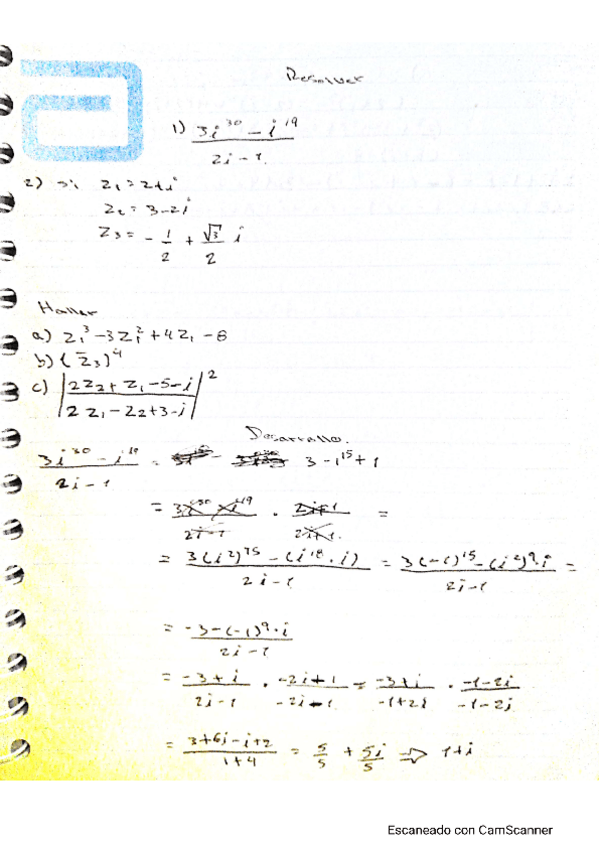 Resolver
1) 3i^30 - i^19 / 2i - 1
2) si z₁ = 2+i
z₂ = 3-2i
z₃ = - 1/2 + √3/2 i
Hallar
a) z₁^3 - 3z₁^2 + 4z₁ - 8
b) (z̄₃)^4
c) |2z₂ + z₁ - 5 - i / 2z₁ - z₂ + 3 - i|^2
Desarrollo.
3i^30 - i^19 / 2i - 1 = 3 - 1^15 + 1
= 3i^30 - i^19 / 2i - 1 · 2i+1 / 2i+1 =
= 3(i^2)^15 - (i^18 · i) / 2i - 1 = 3(-1)^15 - (i^2)^9 · i / 2i - 1 =
= -3 - (-1)^9 · i / 2i - 1
= -3 + i / 2i - 1 · -2i + 1 / -2i - 1 = -3 + i / -1 + 2i · -1 - 2i / -1 - 2i
= 3 + 6i - i + 2 / 1 + 4 = 5/5 + 5i/5 ⇒ 1 + i
Escaneado con CamScanner